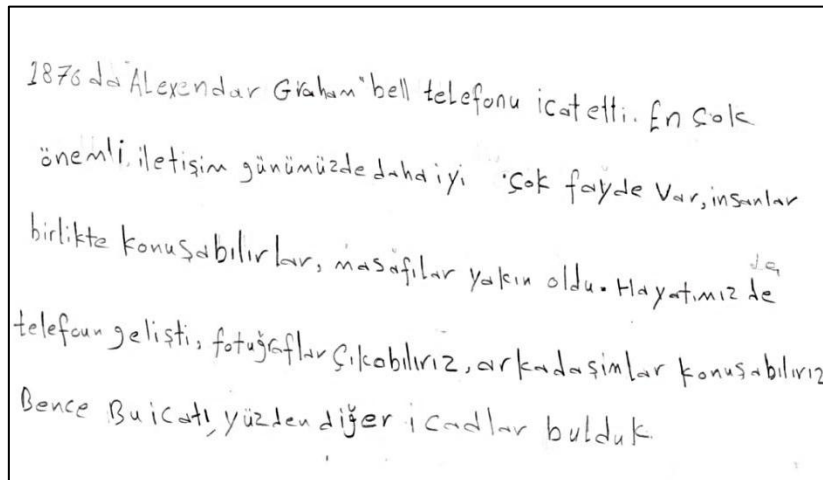 1876 da "Alexendar Graham" bell telefonu icat etti. En çok
önemli, iletişim günümüzde daha iyi çok fayde var, insanlar
birlikte konuşabilirlar, masafılar yakın oldu. Hayatımız de
da
telefoun gelişti, fotuğraflar çıkobiliriz, arkadaşimlar konuşabiliriz
Bence Bu icatı, yüzden diğer icadlar bulduk.